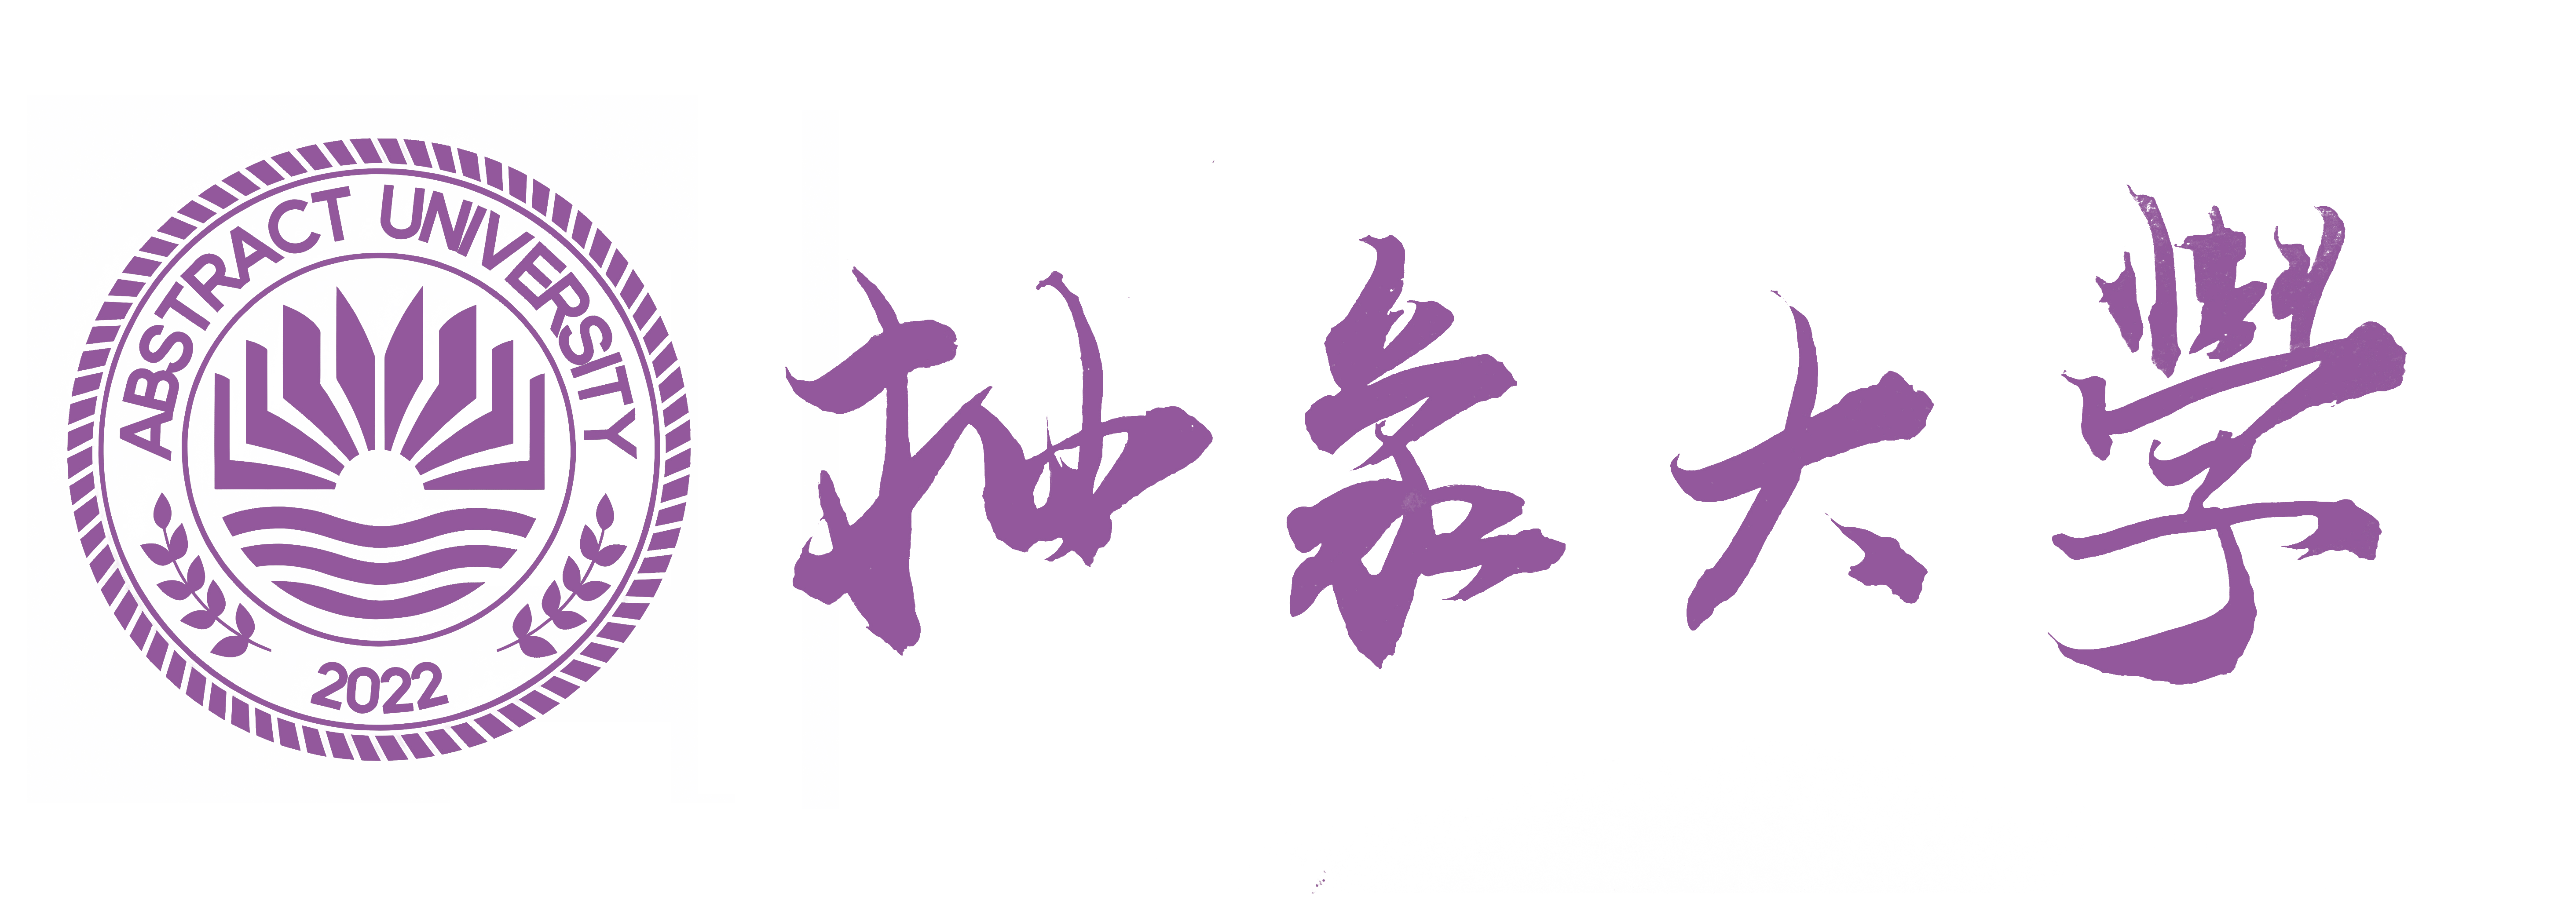 ABSTRACT UNIVERSITY
2022
抽象大學